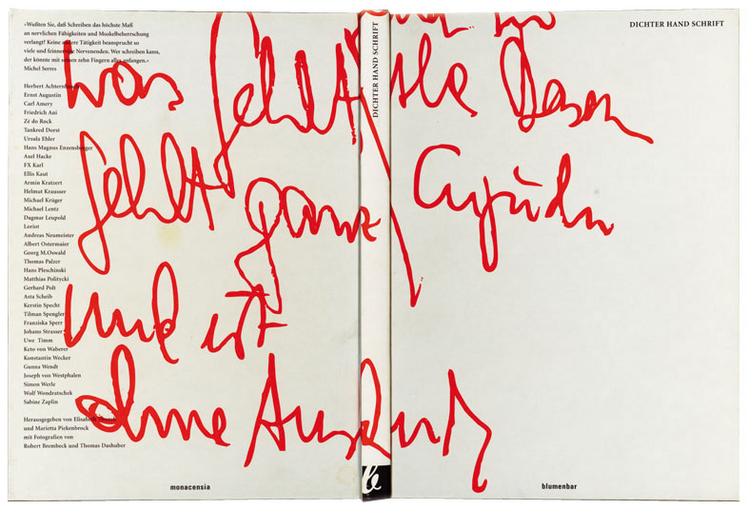 »Wußten Sie, daß Schreiben das höchste Maß
an nervlichen Fähigkeiten und Muskelbeherrschung
verlangt? Keine andere Tätigkeit beansprucht so
viele und Nervenenden. Wer schreiben kann,
der könnte mit seinen zehn Fingern alles anfangen.«
Michel Serres
Herbert Achternbusch
Ernst Augustin
Carl Amery
Friedrich Ani
Zé do Rock
Tankred Dorst
Ursula Ehler
Hans Magnus Enzensberger
Axel Hacke
FX Karl
Ellis Kaut
Armin Kratzert
Helmut Krausser
Michael Krüger
Michael Lentz
Dagmar Leupold
Loriot
Andreas Neumeister
Albert Ostermaier
Georg M.Oswald
Thomas Palzer
Hans Pleschinski
Matthias Politycki
Gerhard Polt
Asta Scheib
Kerstin Specht
Tilman Spengler
Franziska Sperr
Johano Strasser
Uwe Timm
Keto von Waberer
Konstantin Wecker
Gunna Wendt
Joseph von Westphalen
Simon Werle
Wolf Wondratschek
Sabine Zaplin
Herausgegeben von Elisabeth
und Marietta Piekenbrock
mit Fotografien von
Robert Brembeck und Thomas Dashuber
was fehlt
fehlt ganz
und ist
ohne
monacensia
DICHTER HAND SCHRIFT
b
DICHTER HAND SCHRIFT
blumenbar